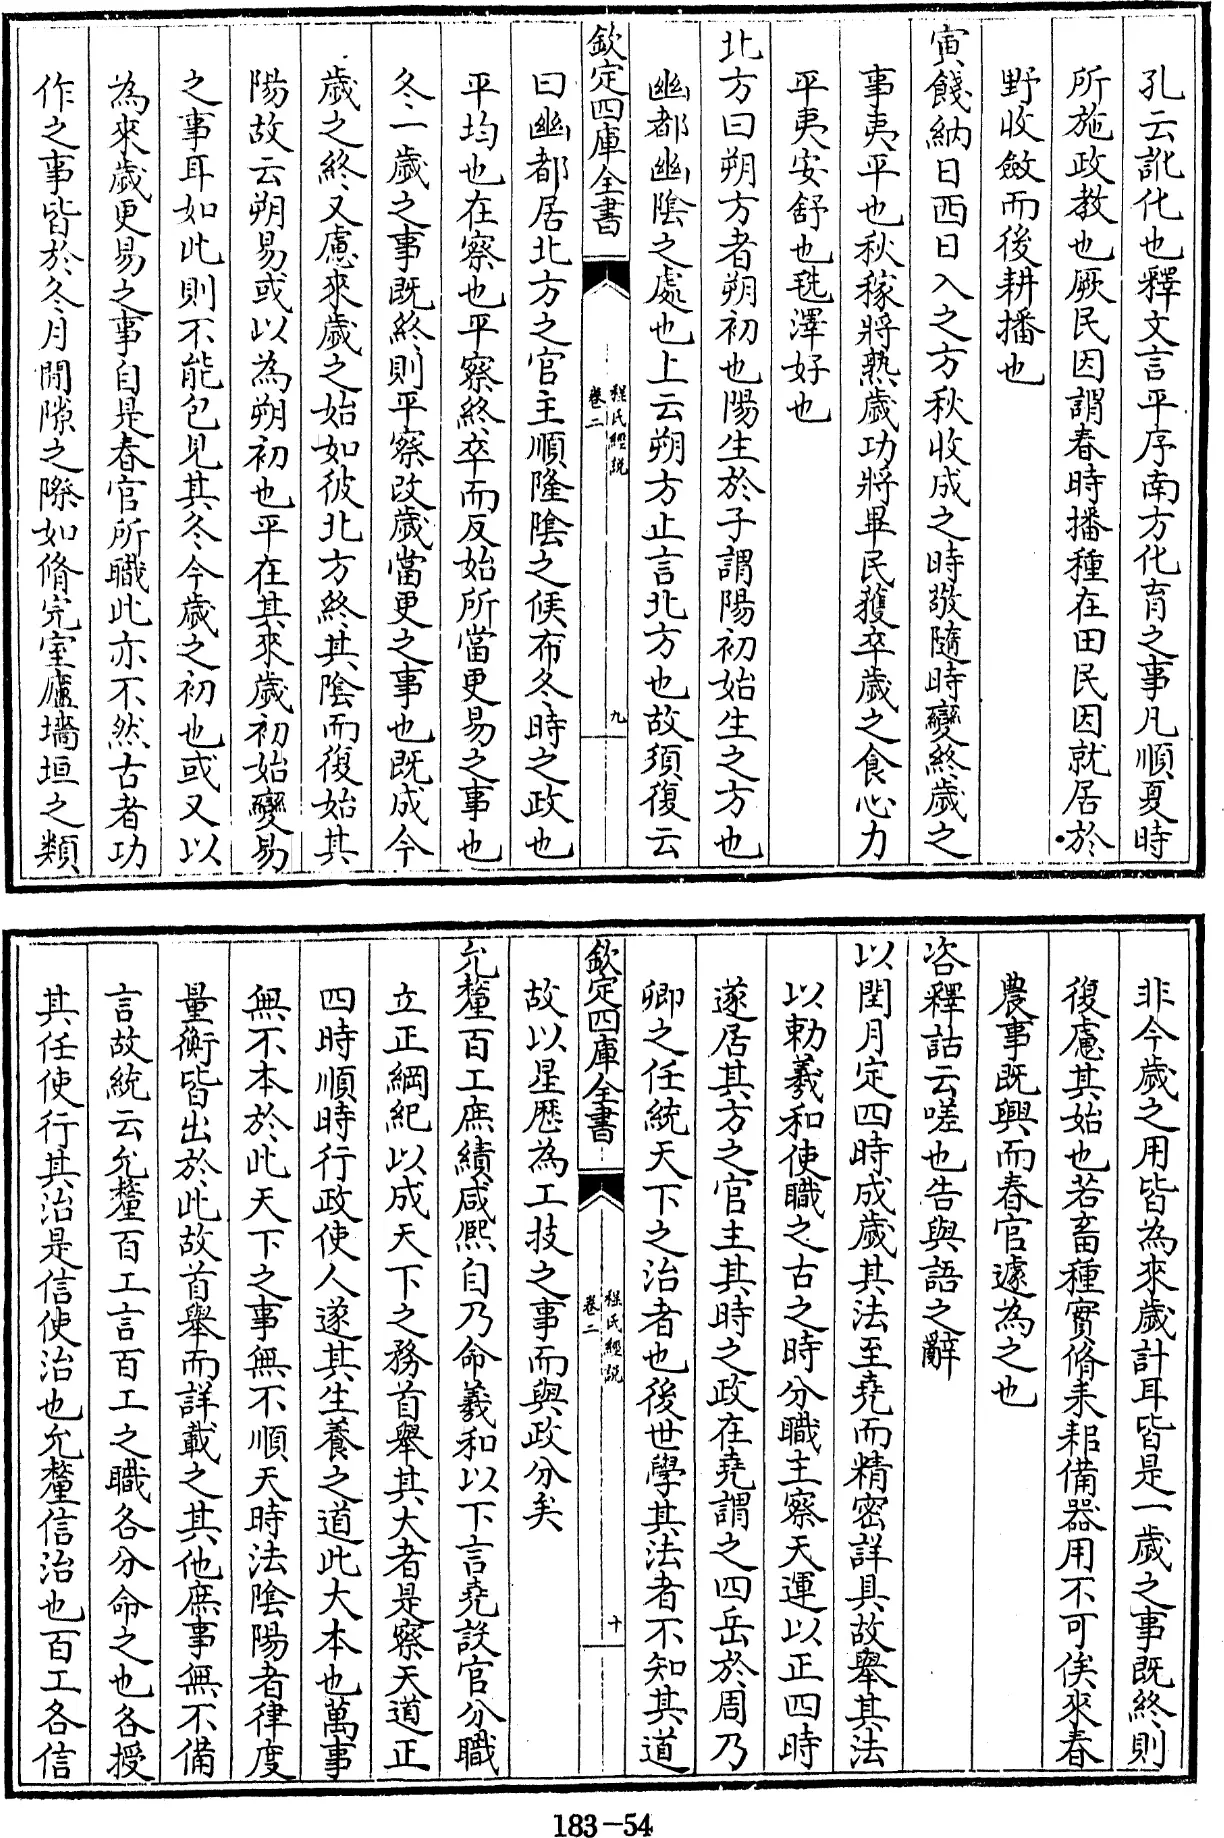 孔云訛化也釋文言平序南方化育之事凡順夏時
所施政教也厥民因謂春時播種在田民因就居於
野收斂而後耕播也
寅餞納日西日入之方秋收成之時敬隨時變終歲之
事夷平也秋稼將熟歲功將畢民獲卒歲之食心力
平夷安舒也毨澤好也
北方曰朔方者朔初也陽生於子謂陽初始生之方也
幽都幽陰之處也上云朔方止言北方也故須復云
欽定四庫全書
程氏經說
卷二
九
曰幽都居北方之官主順隆陰之候布冬時之政也
平均也在察也平察終卒而反始所當更易之事也
冬一歲之事既終則平察改歲當更之事也既成今
歲之終又慮來歲之始如彼北方終其陰而復始其
陽故云朔易或以為朔初也平在其來歲初始變易
之事耳如此則不能包見其冬今歲之初也或又以
為來歲更易之事自是春官所職此亦不然古者功
作之事皆於冬月閒隙之際如脩完室廬墻垣之類
非今歲之用皆為來歲計耳皆是一歲之事既終則
復慮其始也若畜種實脩耒耜備器用不可俟來春
農事既興而春官遽為之也
咨釋詁云嗟也告與語之辭
以閏月定四時成歲其法至堯而精密詳具故舉其法
以勅羲和使職之古之時分職主察天運以正四時
遂居其方之官主其時之政在堯謂之四岳於周乃
卿之任統天下之治者也後世學其法者不知其道
欽定四庫全書
程氏經說
卷二
十
故以星歷為工技之事而與政分矣
允釐百工庶績咸熙自乃命羲和以下言堯設官分職
立正綱紀以成天下之務首舉其大者是察天道正
四時順時行政使人遂其生養之道此大本也萬事
無不本於此天下之事無不順天時法陰陽者律度
量衡皆出於此故首舉而詳載之其他庶事無不備
言故統云允釐百工言百工之職各分命之也各授
其任使行其治是信使治也允釐信治也百工各信
183-54